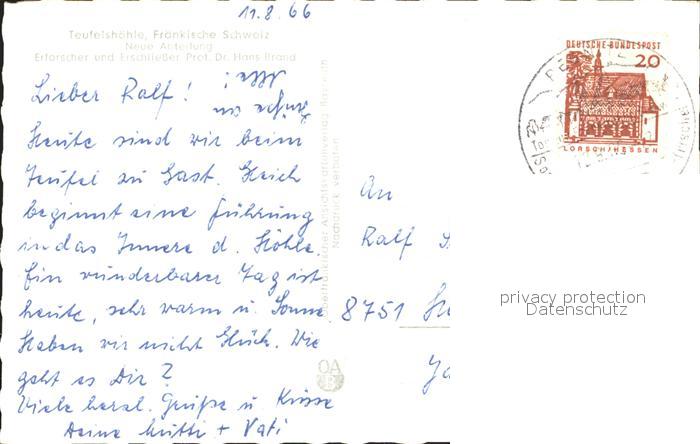 11.8.66
Teufelshöhle, Fränkische Schweiz
Neue Abteilung
Erforscher und Erschließer Prof. Dr. Hans Brand
Lieber Ralf!
Heute sind wir beim
Teufel zu Gast. Gleich
beginnt eine Führung
in das Innere d. Höhle.
Ein wunderbarer Tag ist
heute, sehr warm u. Sonne
Haben wir nicht Glück. Wie
geht es Dir?
Viele herzl. Grüße u Küsse
Deine Mutti + Vati
An
Ralf
8751
DEUTSCHE BUNDESPOST
20
LORSCH/HESSEN
privacy protection
Datenschutz
Nachdruck verboten